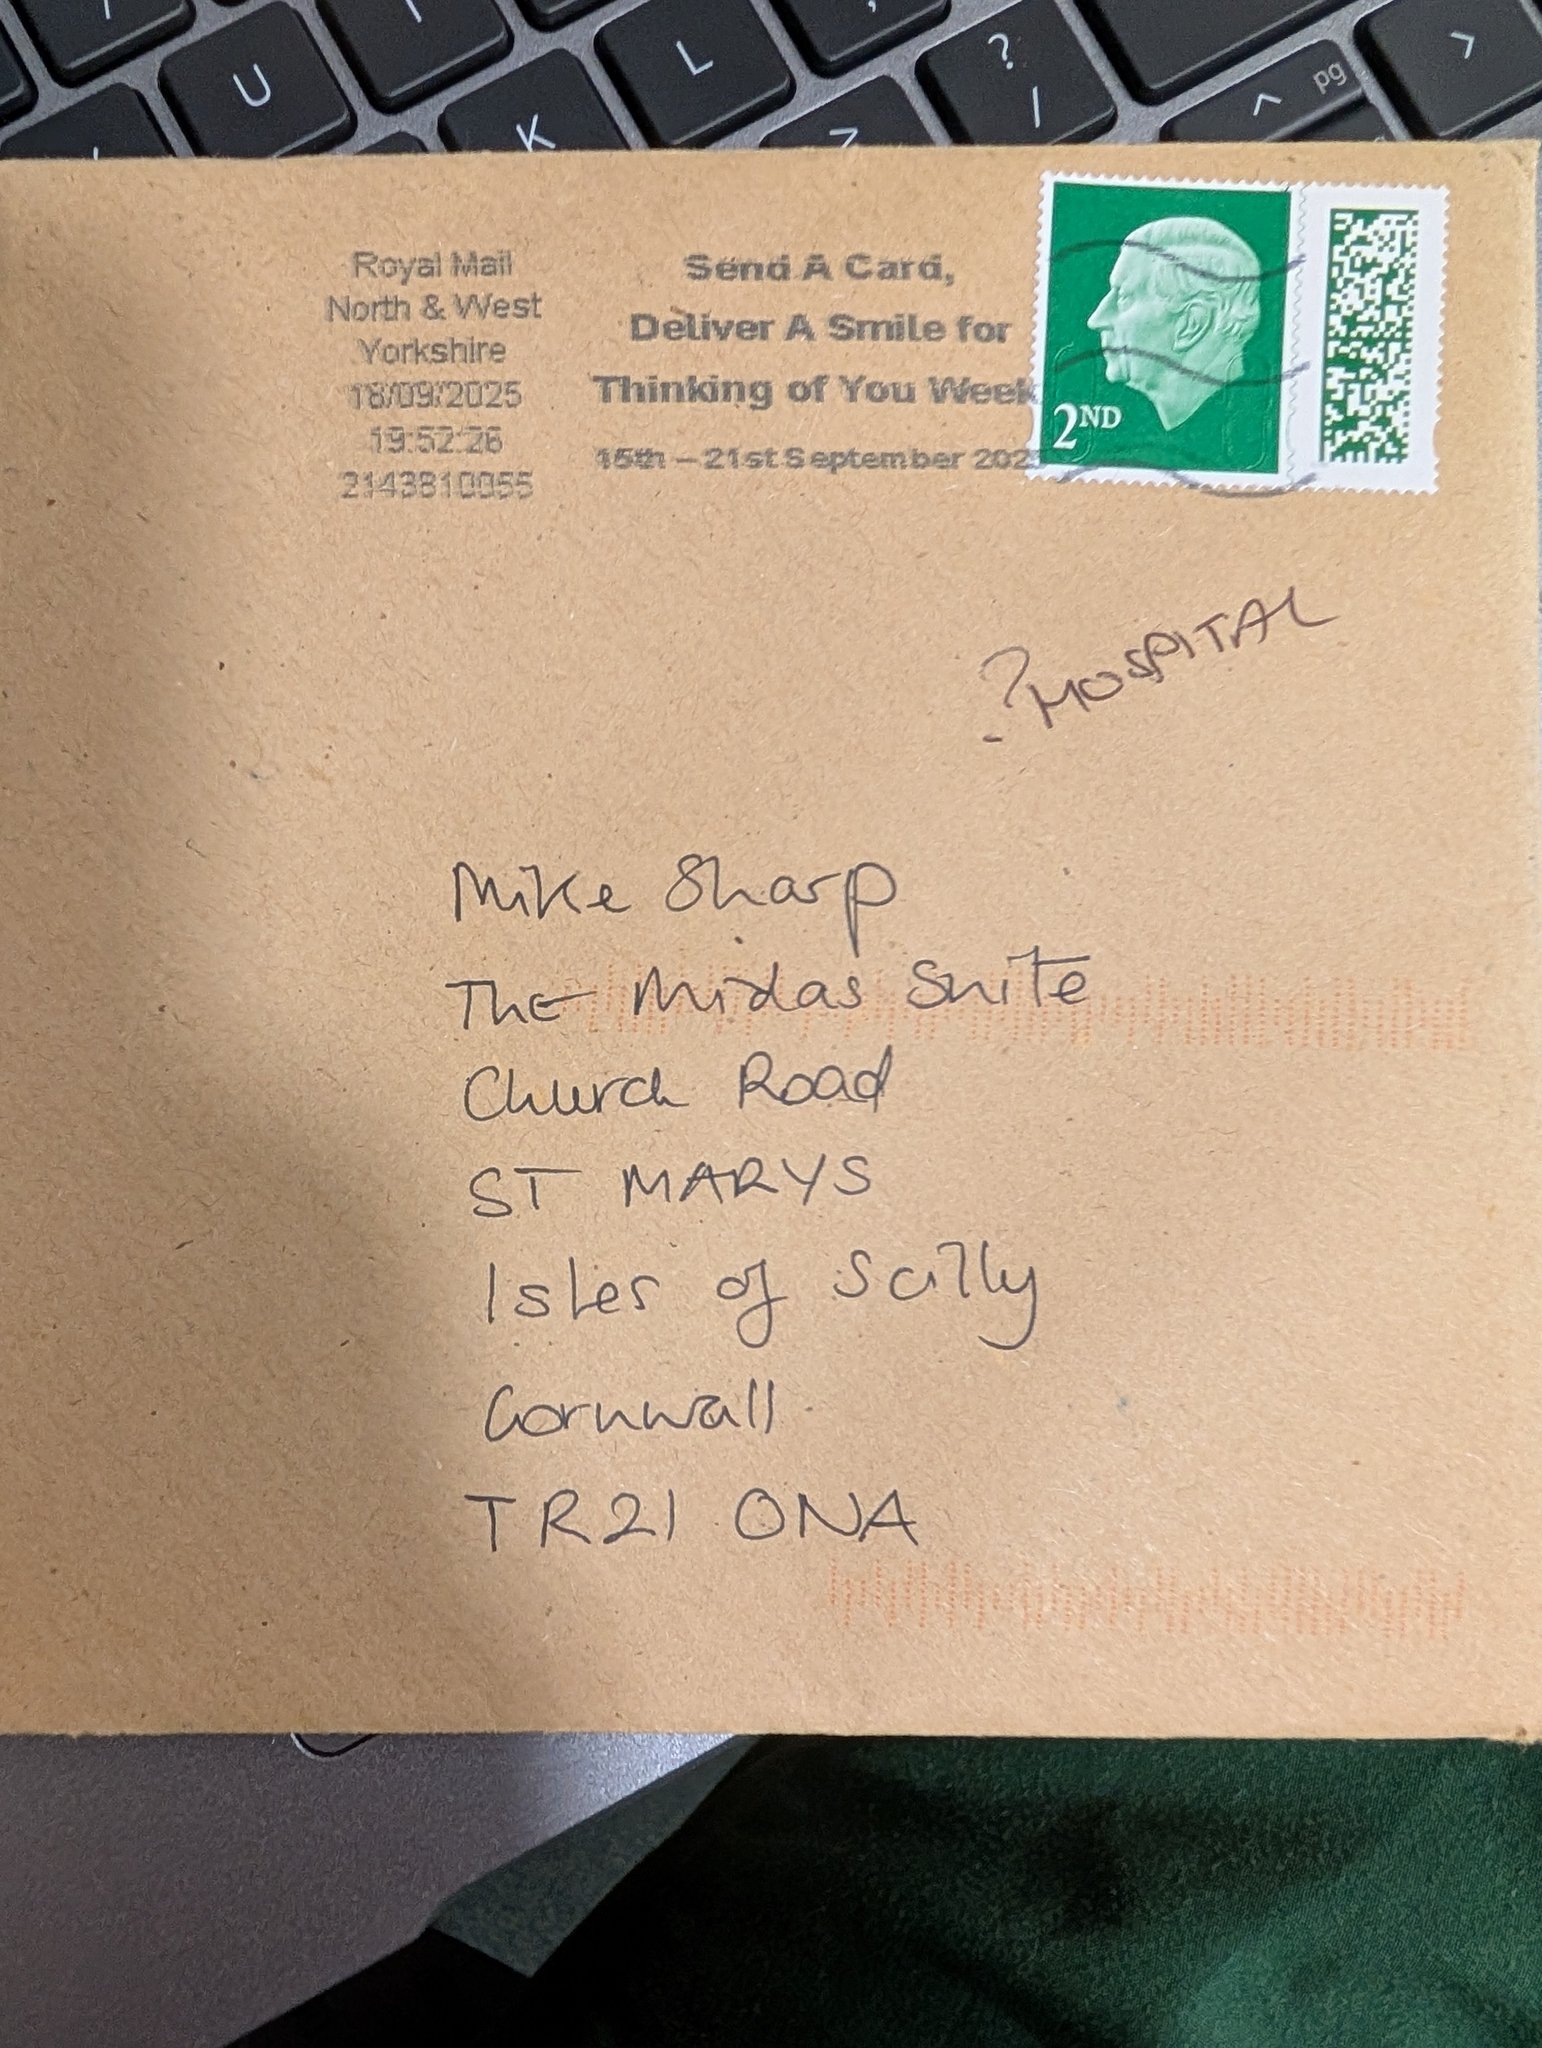 U
K
L
?
/
>
^ pg
>
Royal Mail
North & West
Yorkshire
18/09/2025
19:52:26
2143810055
Send A Card,
Deliver A Smile for
Thinking of You Week
15th – 21st September 202
2ND
? HOSPITAL
Mike Sharp
The Midas Suite
Church Road
ST MARYS
Isles of Scilly
Cornwall
TR21 0NA